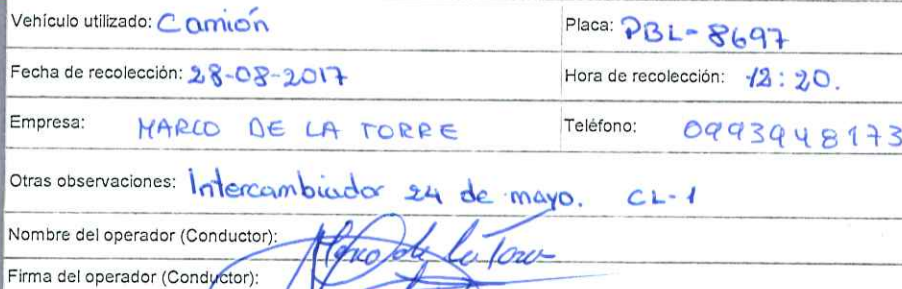 Vehículo utilizado: Camión Placa: PBL-8697
Fecha de recolección: 28-08-2017 Hora de recolección: 12:20.
Empresa: MARCO DE LA TORRE Teléfono: 0993948173
Otras observaciones: Intercambiador 24 de mayo. CL-1
Nombre del operador (Conductor): Marco de la Torre
Firma del operador (Conductor):